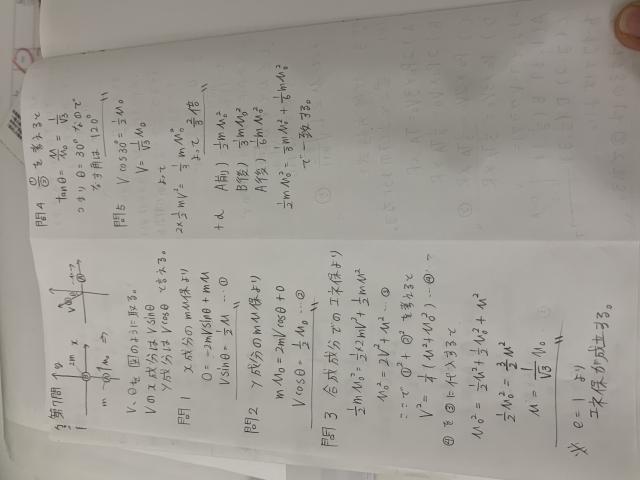 第7問
y
2m
x
m
u₀
⇒
V
u
V、θを図のように取る。
Vのx成分はVsinθ
y成分はVcosθと言える。
問1 x成分のmu保より
0=-2mVsinθ+mu
Vsinθ=½u …①
問2 y成分のmu保より
mu₀=2mVcosθ+0
Vcosθ=½u₀ …②
問3 合成成分でのエネ保より
½mu₀²=½×2mV²+½mu²
u₀²=2V²+u² …③
ここで①²+②²を考えると
V²=¼(u²+u₀²) …④
④を③に代入すると
u₀²=½u²+½u₀²+u²
½u₀²=3/2u²
u=1/√3 u₀
※ e=1より
エネ保が成立する。
問4 ①/②を考えると
tanθ=u/u₀=1/√3
つまりθ=30°なので
なす角は120°
問5 Vcos30°=½u₀
V=1/√3 u₀
よって
2×½mV²=⅓mu₀²
よって⅔倍
+α A前) ½mu₀²
B後) ⅓mu₀²
A後) 1/6mu₀²
½mu₀²=⅓mu₀²+1/6mu₀²
で一致する。